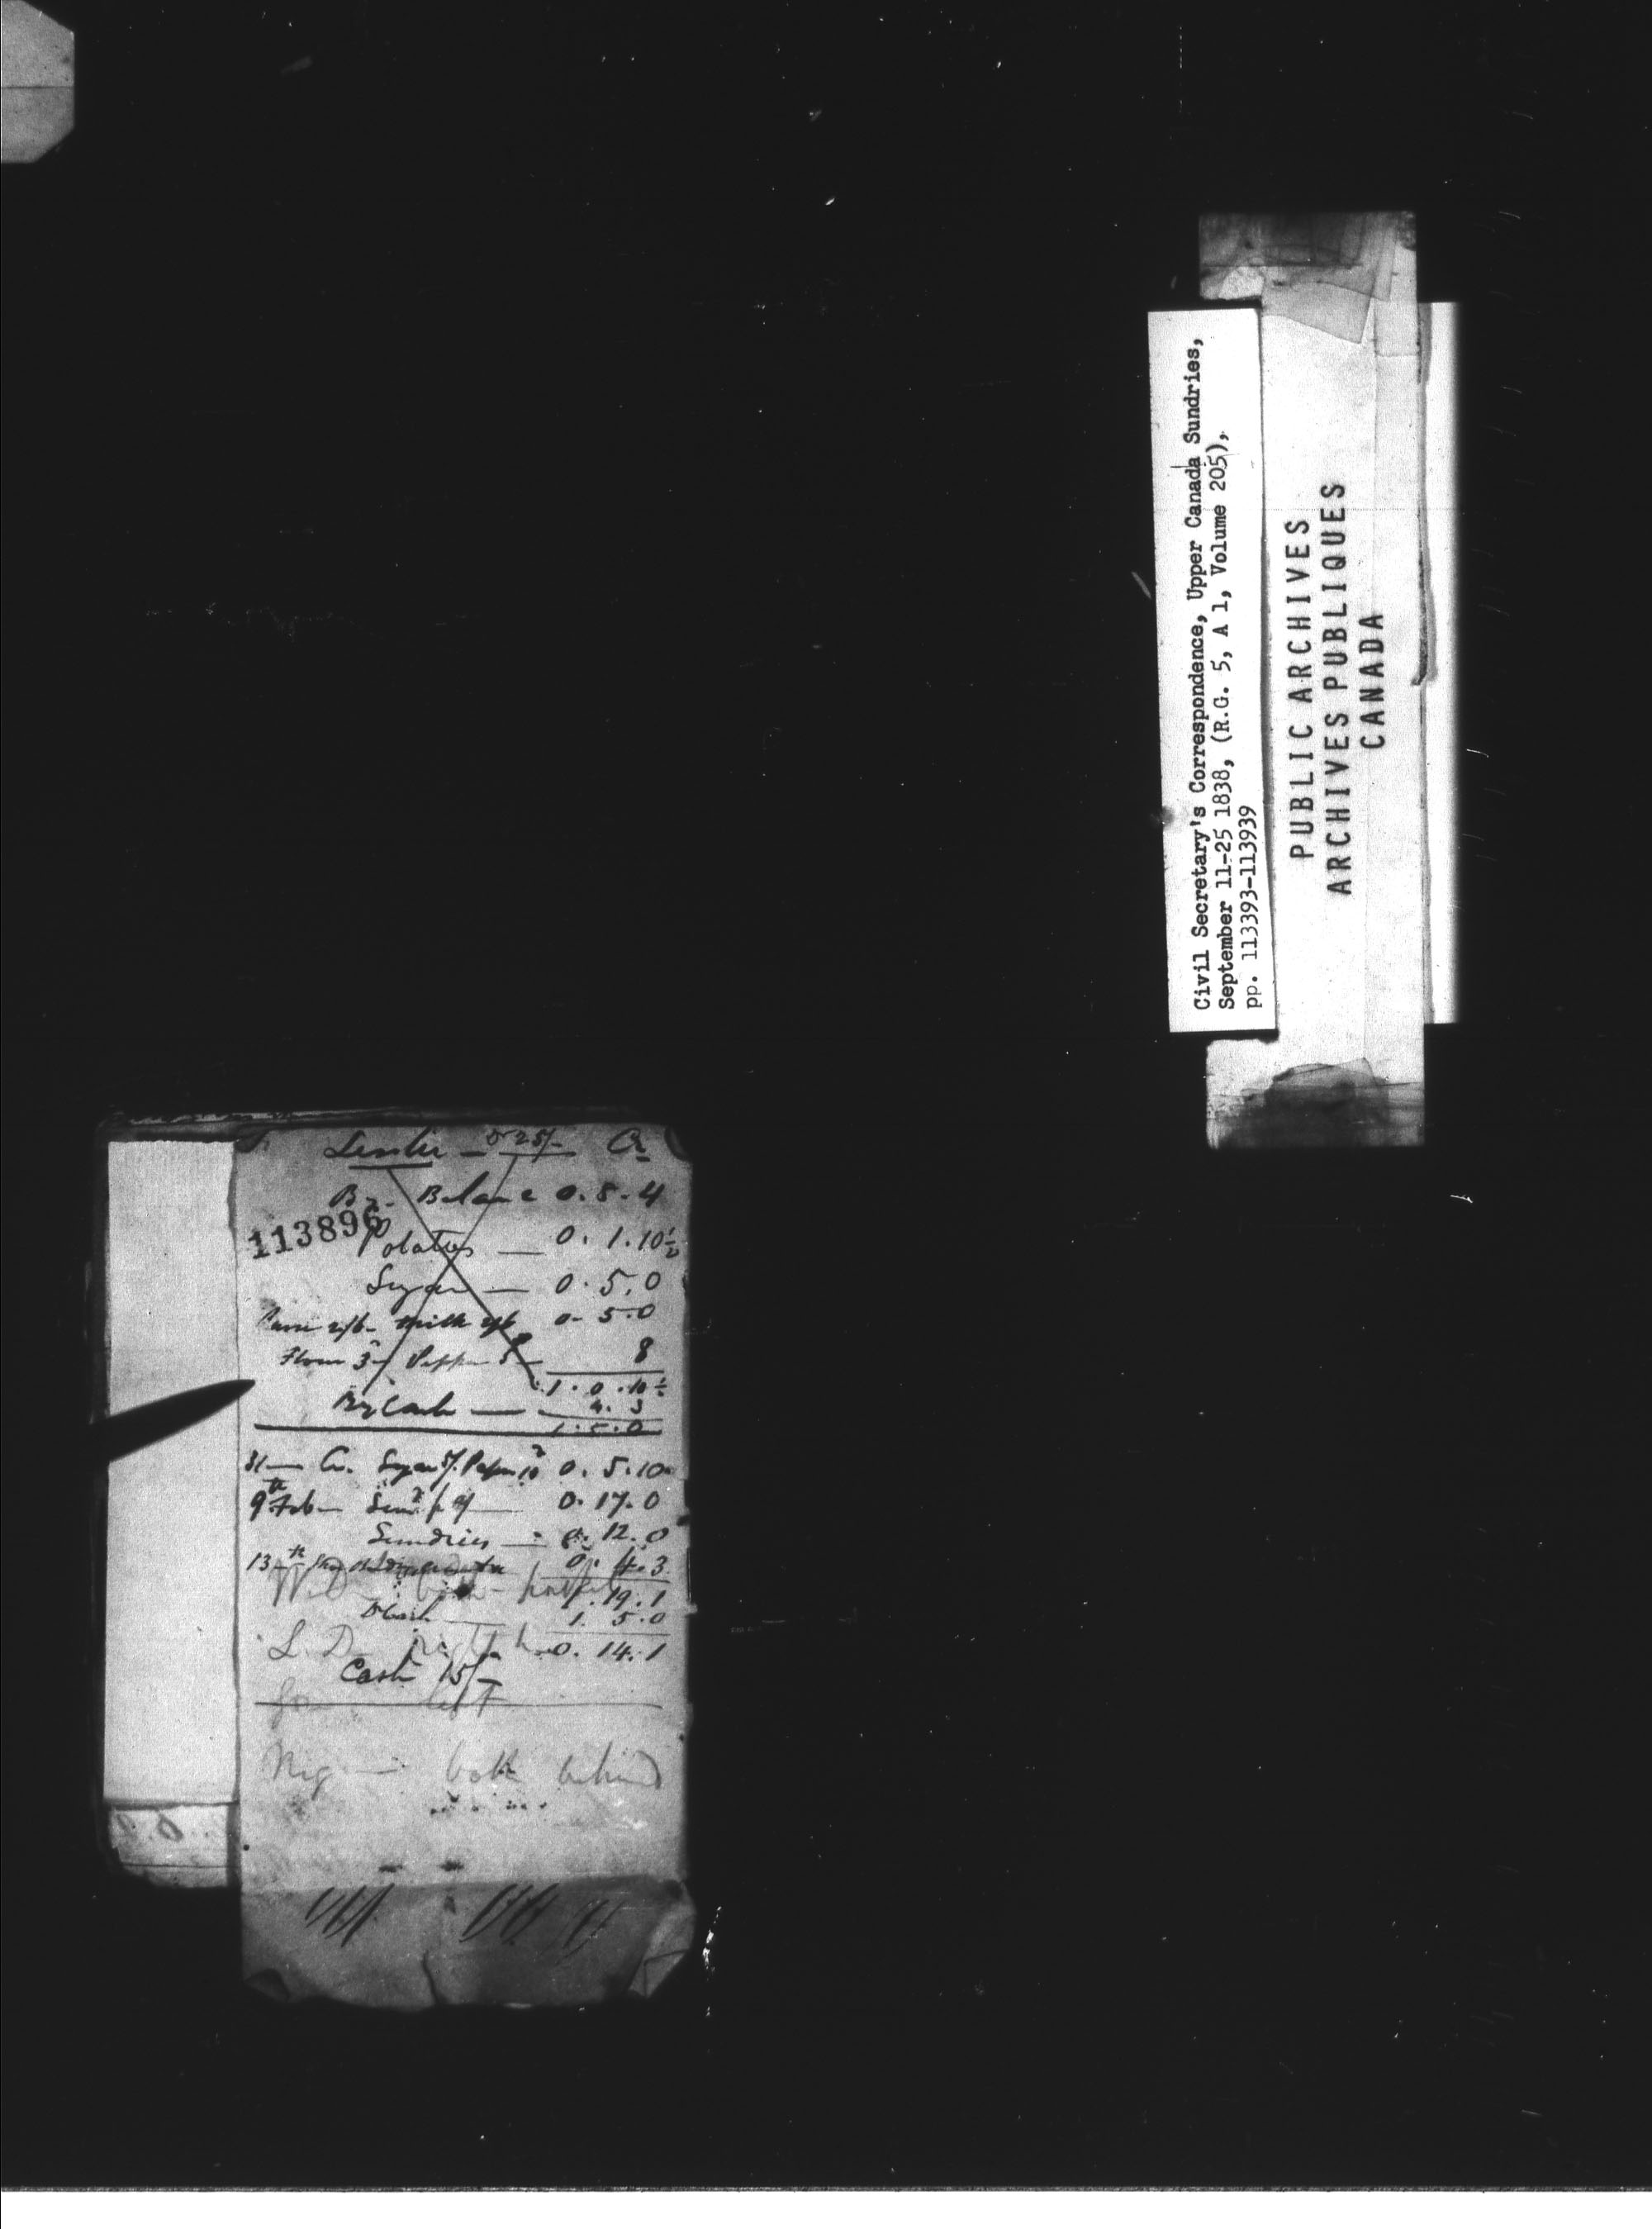 Leslie — Dr 25/- Cr
By Balance 0. 8. 4
113896
Potatoes — 0. 1. 10½
Sugar — 0. 5. 0
2/6 - milk 2/6 0 - 5. 0
Flour 3 - Pepper 5 — 8
1. 0. 10½
By Cash — 4. 3
1. 5. 0
31 — Cr. Sugar 5/. Paper 10 0. 5. 10
9th Feb — 0. 17. 0
Sundries — 0. 12. 0
13th 0. 4. 3
1. 19. 1
Cash — 1. 5. 0
L. D. 0. 14. 1
Cash 15/-
left
Nig — both behind
Civil Secretary's Correspondence, Upper Canada Sundries,
September 11-25 1838, (R.G. 5, A 1, Volume 205),
pp. 113393-113939
PUBLIC ARCHIVES
ARCHIVES PUBLIQUES
CANADA